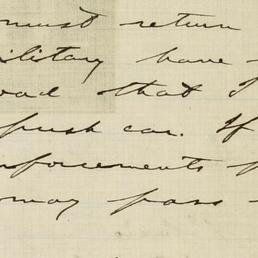 must return
military have
road that I
push car. If
inforcements
may pass